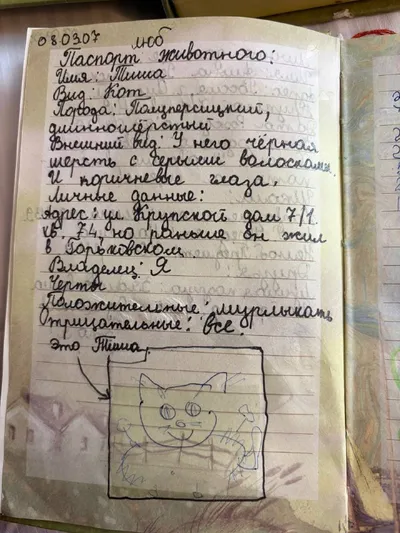 080307 люб
Паспорт животного:
Имя: Тиша
Вид: Кот
Порода: Полуперсицкий,
длинношёрстый
Внешний вид: У него чёрная
шерсть с серыми волосками.
И коричневые глаза,
личные данные:
адрес: ул Крупской дом 7/1
кв. 74, но раньше он жил
в Горьковском
Владелец: Я
Черты
Положительные: мурлыкать
Отрицательные: все.
это Тиша,